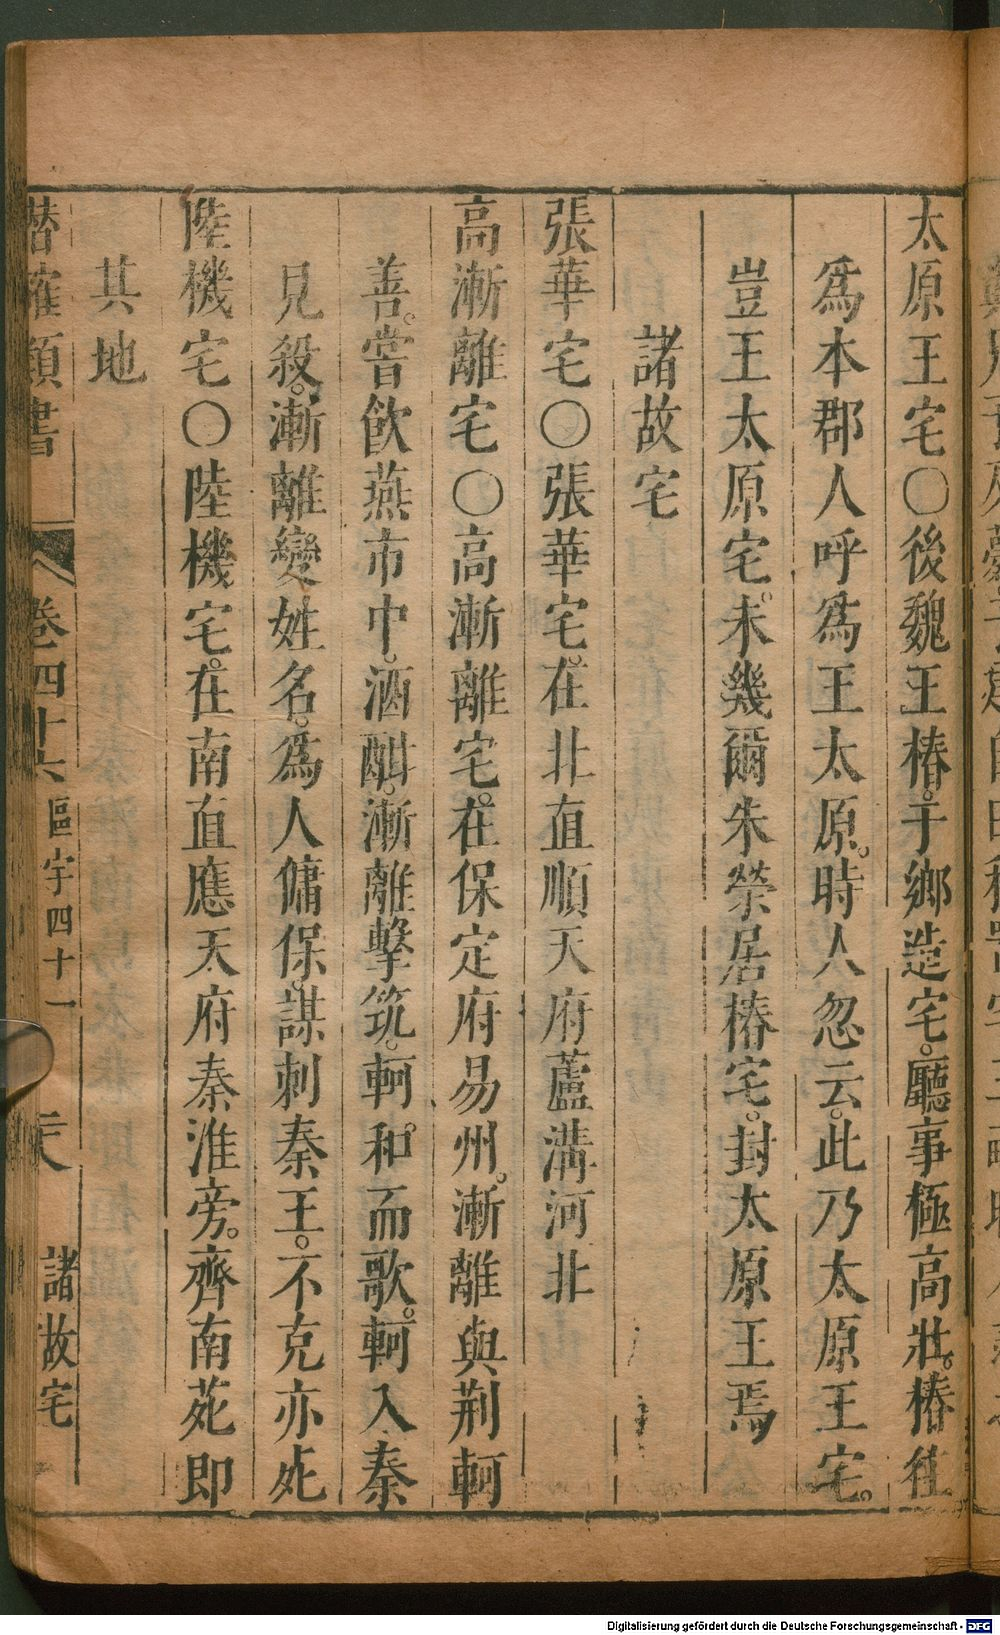 太原王宅〇後魏王椿。于鄉造宅。廳事極高壯。椿徃
爲本郡人呼爲王太原。時人忽云。此乃太原王宅。
豈王太原宅。未幾爾朱榮居椿宅。封太原王焉
諸故宅
張華宅〇張華宅。在北直順天府蘆溝河北
高漸離宅〇高漸離宅。在保定府易州。漸離與荆軻
善。嘗飲燕市中。酒酣。漸離擊筑。軻和而歌。軻入秦
見殺。漸離變姓名。爲人傭保。謀刺秦王。不克亦死
陸機宅〇陸機宅。在南直應天府秦淮旁。齊南苑即
其地
潛確類書 卷四十六 區宇四十一 二六 諸故宅
Digitalisierung gefördert durch die Deutsche Forschungsgemeinschaft - DFG